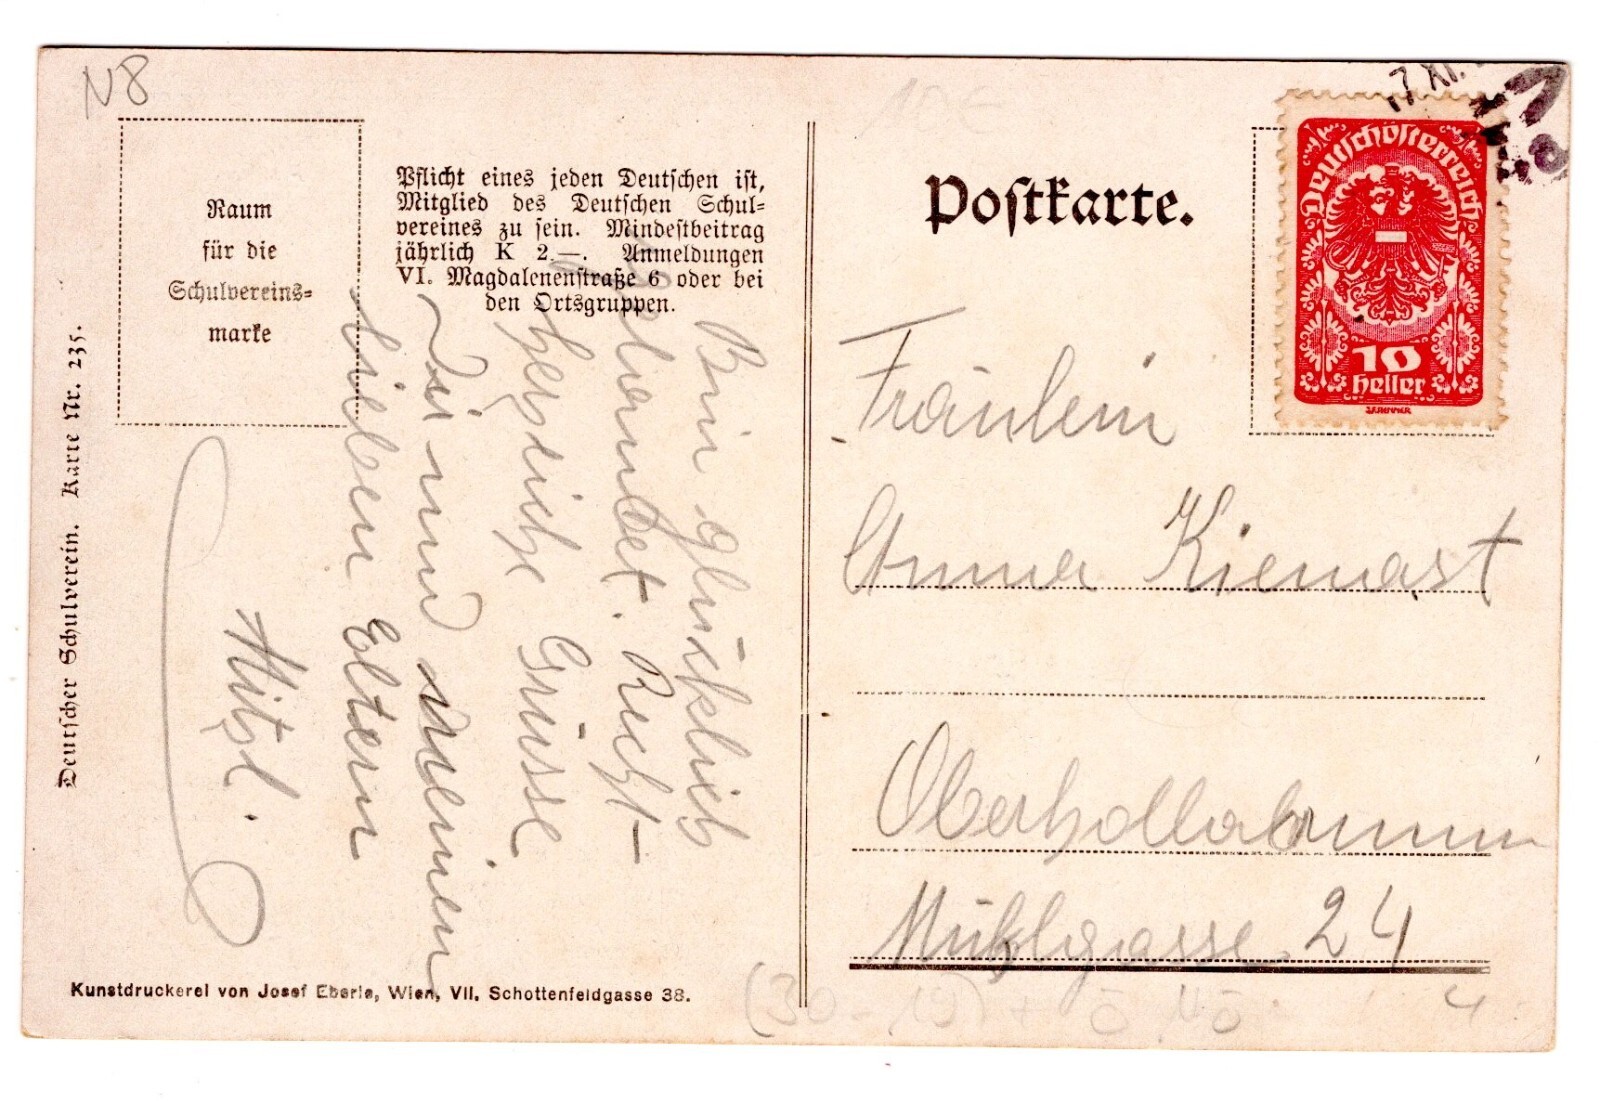 N8
Raum
für die
Schulvereins=
marke
Pflicht eines jeden Deutschen ist,
Mitglied des Deutschen Schul=
vereines zu sein. Mindestbeitrag
jährlich K 2.—. Anmeldungen
VI. Magdalenenstraße 6 oder bei
den Ortsgruppen.
Deutscher Schulverein. Karte Nr. 235.
Bin glücklich
gelandet. Recht
herzliche Grüsse
Dir und deinen
lieben Eltern
Mitzl.
Kunstdruckerei von Josef Eberle, Wien, VII. Schottenfeldgasse 38.
Postkarte.
7 XI.
Deutschösterreich
10
heller
Fräulein
Anna Kienast
Oberhollabrunn
Mühlgasse 24